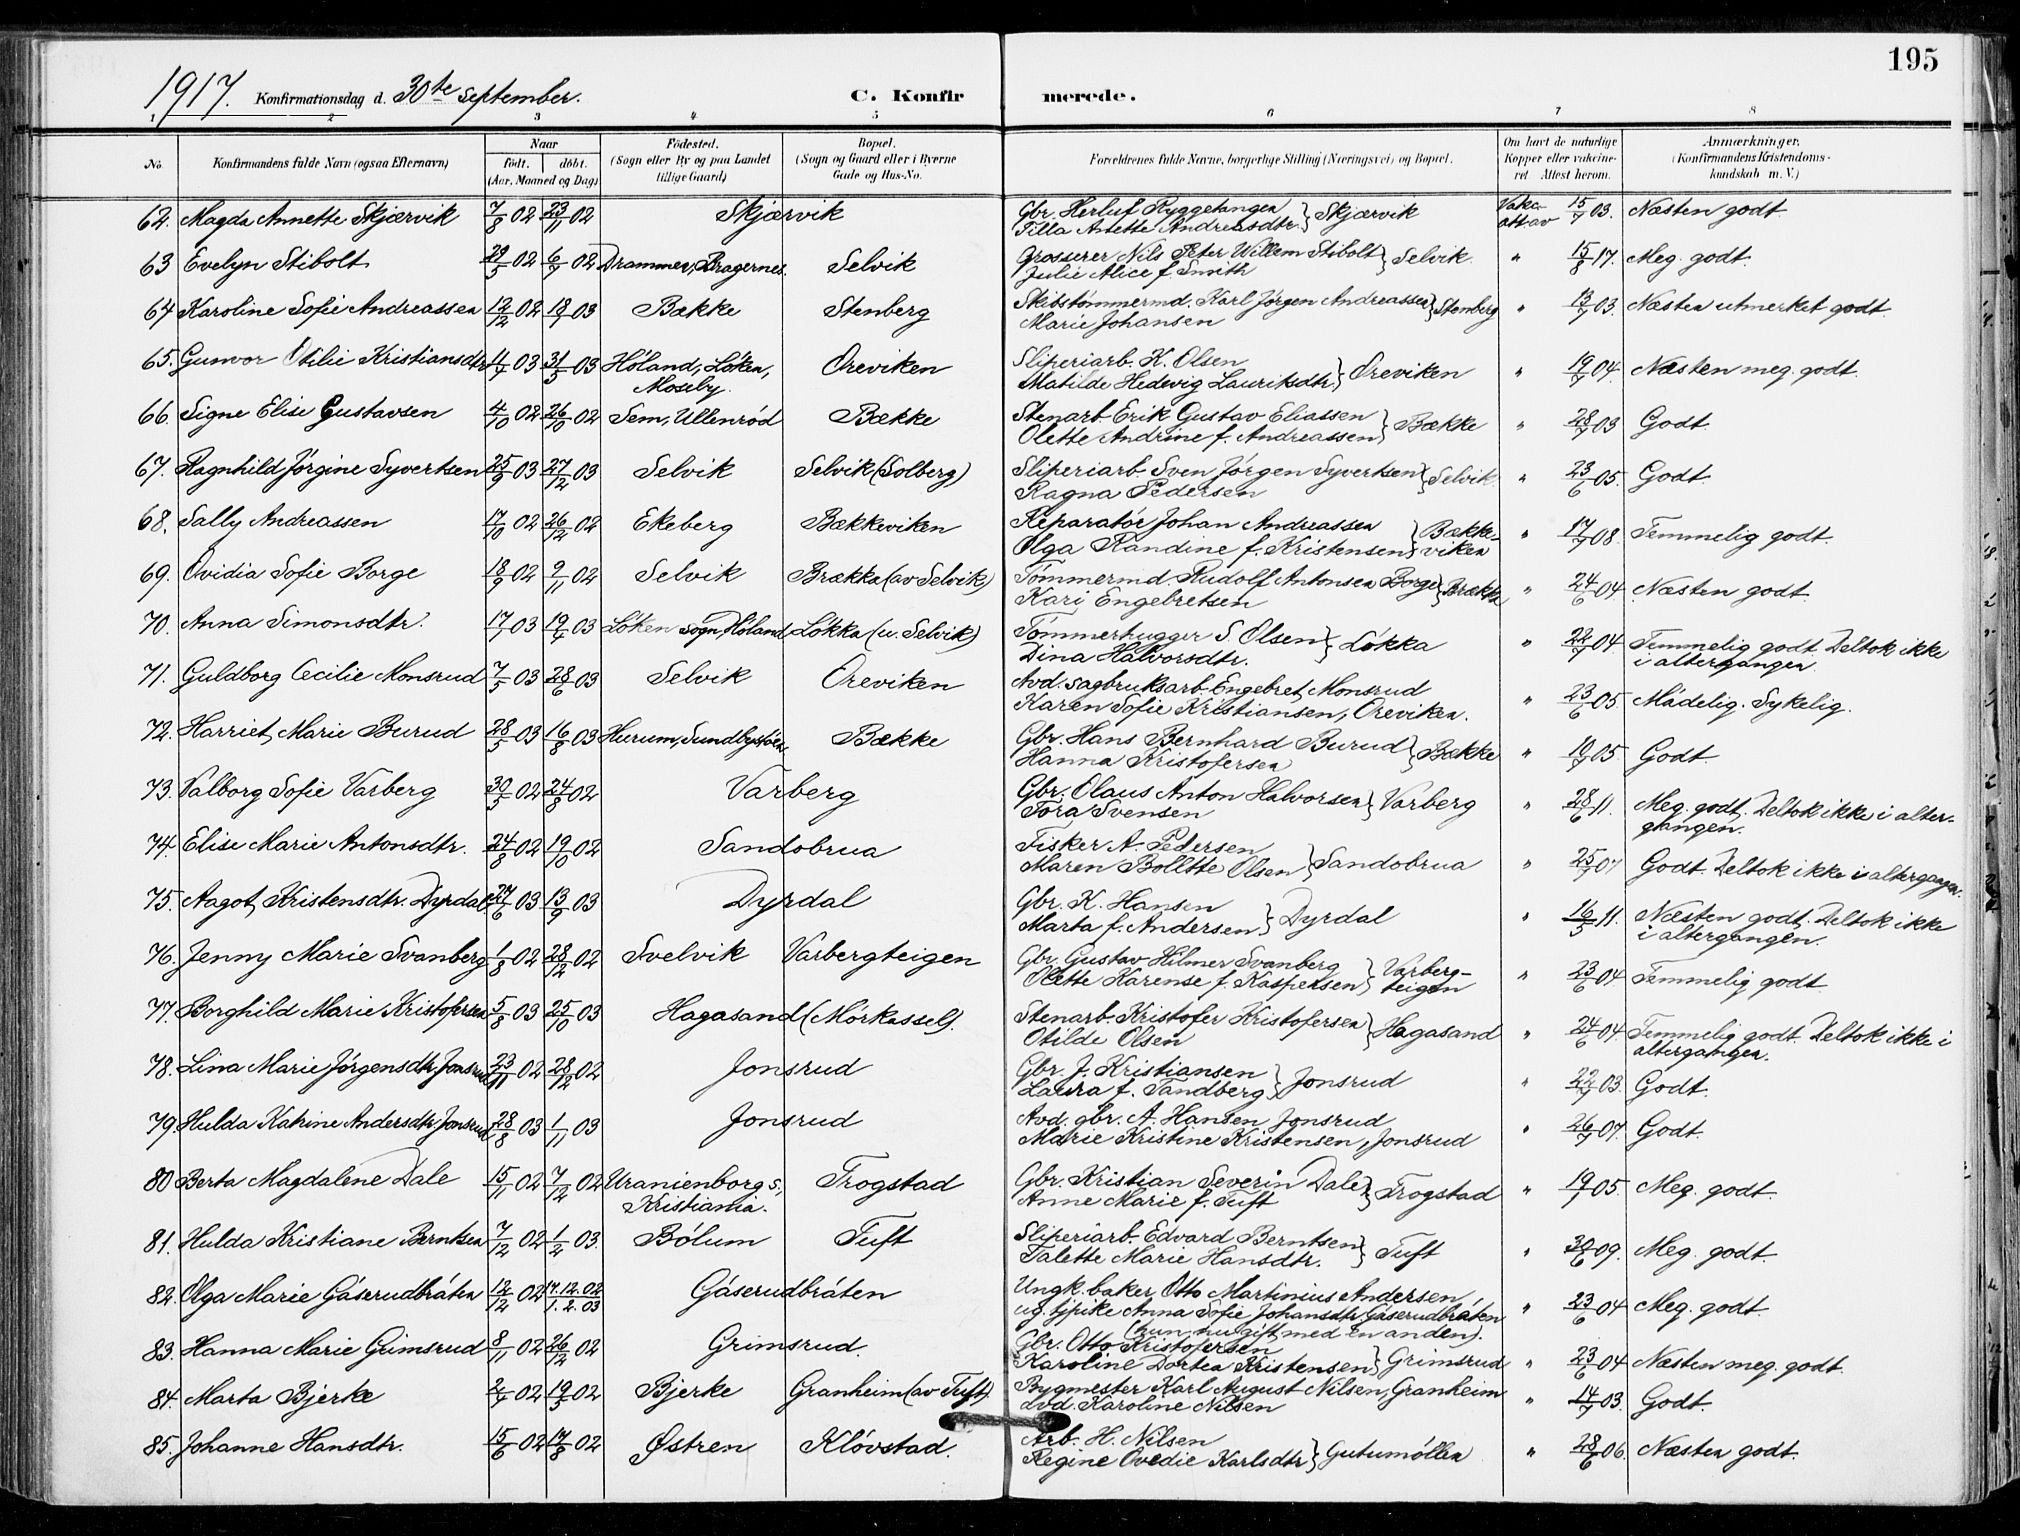 195
1917. Konfirmationsdag d. 30te september. C. Konfir merede.
1 2 3 4 5 6 7 8
No. Konfirmandens fulde Navn (ogsaa Efternavn) Naar født. døbt. (Aar, Maaned og Dag) Fødested. (Sogn eller By og paa Landet tillige Gaard) Bopæl. (Sogn og Gaard eller i Byerne Gade og Hus-No. Forældrenes fulde Navne, borgerlige Stilling (Næringsvei) og Bopæl. Om havt de naturlige Kopper eller vakcineret Attest herom. Anmærkninger. (Konfirmandens Kristendomskundskab m. V.)
62. Magda Annette Skjærvik 7/8 02 23/11 02 Skjærvik Gbr. Herluf Ryggetangen } Skjærvik Vaks. 15/7 03. Næsten godt.
Tilla Anette Andreasdtr. attav
63 Evelyn Stibolt 29/5 02 6/7 02 Drammen, Bragernes. Selvik Grosserer Nils Peter Willem Stibolt } Selvik. " 15/8 17. Meg. godt.
Julie Alice f. Smith
64 Karoline Sofie Andreassen 12/12 02 18/1 03 Bække Stenberg Skibstømmermd. Karl Jørgen Andreassen } Stenberg " 13/7 03. Næsten utmerket godt.
Marie Johansen
65. Gunvor Otilie Kristiansdtr 4/4 03 31/5 03 Høland, Løken, Oreviken Sliperiarb. K. Olsen } Oreviken " 19/7 04. Næsten meg. godt.
Moseby. Matilde Hedevig Lauritsdtr.
66. Signe Elise Gustavsen 4/10 02 26/10 02 Sem, Ullenrød Bække Stenarb. Erik Gustav Eliassen } Bække " 28/7 03 Godt.
Olette Andrine f. Andreassen
67. Ragnhild Jørgine Syvertsen 25/9 03 27/12 03 Selvik Selvik (Solberg) Sliperiarb. Sven Jørgen Syvertsen } Selvik. " 23/6 05. Godt.
Ragna Pedersen
68. Sally Andreassen 17/10 02 26/12 02 Ekeberg Bækkeviken Reparatør Johan Andreassen } Bække- " 17/7 08. Temmelig godt.
Olga Randine f. Kristensen viken
69. Ovidia Sofie Borge 18/9 02 9/11 02 Selvik Brækka (av Selvik) Tømmermd. Rudolf Antonsen Borge } Brækka " 24/6 04. Næsten godt.
Kari Engebretsen
70. Anna Simonsdtr. 17/1 03 19/4 03 Løken sogn, Høland Løkka (u. Selvik) Tømmerhugger S. Olsen } Løkka " 22/7 04. Temmelig godt. Deltok ikke
Dina Halvorsdtr. i altergangen.
71. Guldborg Cecilie Monsrud 7/5 03 28/6 03 Selvik Oreviken Avd. sagbruksarb. Engebret Monsrud " 23/6 05. Mådelig. Sykelig.
Karen Sofie Kristiansen, Oreviken.
72. Harriet Marie Burud 28/5 03 16/8 03 Hurum, Sundbysåsen Bække Gbr. Hans Bernhard Burud } Bække " 19/7 05. Godt.
Hanna Kristofersen
73. Valborg Sofie Varberg 30/5 02 24/8 02 Varberg Gbr. Olaus Anton Halvorsen } Varberg " 28/6 11. Meg. godt. Deltok ikke i alter-
Tora Svensen gangen.
74. Elise Marie Antonsdtr. 24/8 02 19/10 02 Sandobrua Fisker A. Pedersen } Sandobrua " 25/7 07 Godt. Deltok ikke i altergangen.
Maren Bollette Olsen
75. Aagot Kristensdtr. Dyrdal 27/6 03 13/9 03 Dyrdal Gbr. K. Hansen } Dyrdal " 16/5 11. Næsten godt. Deltok ikke
Marta f. Andersen. i altergangen.
76. Jenny Marie Svanberg 1/8 02 28/12 02 Svelvik Varbergteigen Gbr. Gustav Hilmer Svanberg } Varberg- " 23/6 04 Temmelig godt.
Olette Karense f. Kaspersen teigen
77. Borghild Marie Kristofersen 5/8 03 25/10 03 Hagasand (Mørkassel). Stenarb. Kristofer Kristofersen } Hagasand " 24/6 04. Temmelig godt. Deltok ikke i
Otilde Olsen altergangen.
78. Lina Marie Jørgensdtr. Jonsrud 23/11 02 28/12 02 Jonsrud Gbr. J. Kristiansen } Jonsrud " 22/7 03. Godt.
Laura f. Tandberg
79. Hulda Katrine Andersdtr. Jonsrud 28/8 03 1/11 03 Jonsrud Avd. gbr. A. Hansen Jonsrud " 26/7 07. Godt.
Marie Kristine Kristensen, Jonsrud
80 Berta Magdalene Dale 15/11 02 7/12 02 Uranienborg s., Trogstad Gbr. Kristian Severin Dale } Trogstad " 19/7 05. Meg. godt.
Kristiania. Anne Marie f. Tuft
81. Hulda Kristiane Berntsen 7/12 02 1/2 03. Bølum Tuft Sliperiarb. Edvard Berntsen } Tuft " 30/6 09. Meg. godt.
Talette Marie Hansdtr.
82. Olga Marie Gåserudbråten 12/12 02 17.12.02 Gåserudbråten Ungk. baker Otto Martinius Andersen, " 23/6 04 Meg. godt.
1.2.03 ug. tjpike Anna Sofie Johansdtr. Gåserudbråten
(hun nu gift med en anden).
83. Hanna Marie Grimsrud 8/11 02 26/12 02 Grimsrud. Gbr. Otto Kristofersen } Grimsrud " 23/6 04 Næsten meg. godt.
Karoline Dortea Kristensen
84. Marta Bjerke 2/4 02 19/5 02 Bjerke Granheim (av Tuft). Bygmester Karl August Nilsen, Granheim " 14/7 03. Godt.
avd. Karoline Nilsen
85. Johanne Hansdtr. 15/6 02 17/8 02 Østren Kløvstad. Arb. H. Nilsen } Gutumøllen " 28/6 06. Næsten godt.
Regine Ovedie Karlsdtr